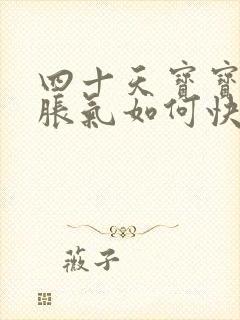 四十天宝寶
脹氣如何快
薇子